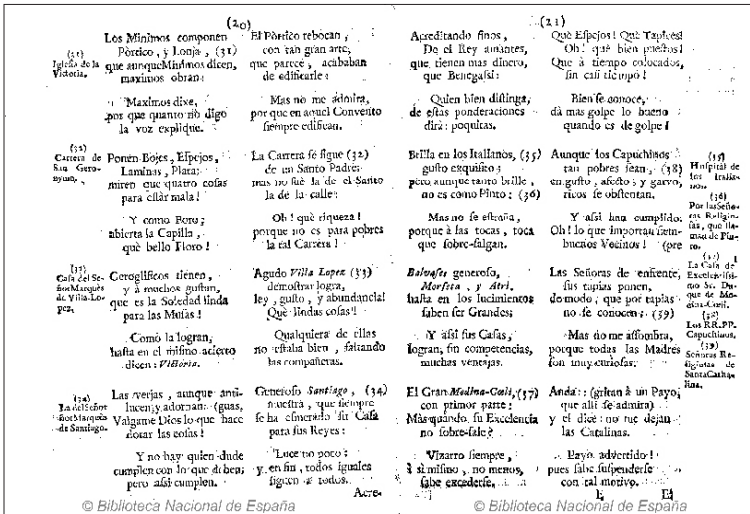 (20)
(31)
Iglesia de la
Victoria.
Los Minimos componen
Pòrtico, y Lonja, (31)
que aunque Minimos dicen,
maximos obran:
Maximos dixe,
por que quanto no digo
la voz explique.
(32)
Carrera de
San Gero-
nymo.
Ponen Bojes, Espejos,
Laminas, Plata:
miren que quatro cosas
para estàr mala!
Y como Foro;
abierta la Capilla,
què bello Floro!
(33)
Casa del Se-
ñor Marquès
de Villa-Lo-
pez.
Geroglificos tienen,
y à muchos gustan,
que es la Soledad linda
para las Musas!
Como la logran,
hasta en el mismo acierto
dicen: Victoria.
(34)
La del Señor
Marquès
de Santiago.
Las verjas, aunque anti-
lucen, y adornan: (guas,
Valgame Dios lo que hace
notar las cosas!
Y no hay quien dude
cumplen con lo que deben;
pero assi cumplen.
El Pòrtico rebocan,
con tan gran arte,
que parece, acababan
de edificarle:
Mas no me admira,
por que en aquel Convento
siempre edifican.
La Carrera se sigue (32)
de un Santo Padre:
mas no fuè la de el Santo
la de la calle:
Oh! què riqueza!
porque no es para pobres
la tal Carrera!
Agudo Villa Lopez (33)
demostrar logra,
ley, gusto, y abundancia!
Què lindas cosas!
Qualquiera de ellas
no estaba bien, faltando
las compañeras.
Generoso Santiago, (34)
muestra, que siempre
se ha esmerado su Casa
para sus Reyes:
Luce no poco;
y en fin, todos iguales
siguen à todos.
Acre-
(21)
Acreditando finos,
De el Rey amantes,
que tienen mas dinero,
que Benegassi:
Quien bien distinga,
de estas ponderaciones
dirà: poquitas.
Brilla en los Italianos, (35)
gusto exquisito;
pero aunque tanto brille,
no es como Pinto: (36)
Mas no se estraña,
porque à las tocas, toca
que sobre-salgan.
generoso,
y Atri,
hasta en los lucimientos
saben ser Grandes;
Y assi sus Casas,
logran, sin competencias,
muchas ventajas.
El Gran Medina-Coeli, (37)
con primor parte:
Mas quando su Excelencia
no sobre-sale?
Vizarro siempre,
à sì mismo, no menos,
sabe excederse.
Què Espejos! Què Tapices!
Oh! què bien puestos!
Que à tiempo colocados,
sin casi tiempo!
Bien se conoce,
dà mas golpe lo bueno
quando es de golpe!
Aunque los Capuchinos
tan pobres sean, (38)
en gusto, afecto, y garvo,
ricos se obstentan.
Y assi han cumplido:
Oh! lo que importan siem-
buenos Vecinos! (pre
Las Señoras de enfrente,
sus tapias ponen,
de modo, que por tapias
no se conocen: (39)
Mas no me assombra,
porque todas las Madres
son muy curiosas:
Anda: (gritan à un Payo,
que alli se admira)
y el dice: no me dejan
las Catalinas.
Payo advertido!
pues sabe suspenderse
con tal motivo.
(35)
Hospital de
los Italia-
nos.
(36)
Por las Seño-
ras Religio-
sas, que lla-
man de Pin-
to.
(37)
La Casa de
Excelentissi-
mo Sr. Du-
que de Me-
dina-Coeli.
(38)
Los RR. PP.
Capuchinos.
(39)
Señoras Re-
ligiosas de
Santa Catha-
lina.
© Biblioteca Nacional de España
© Biblioteca Nacional de España